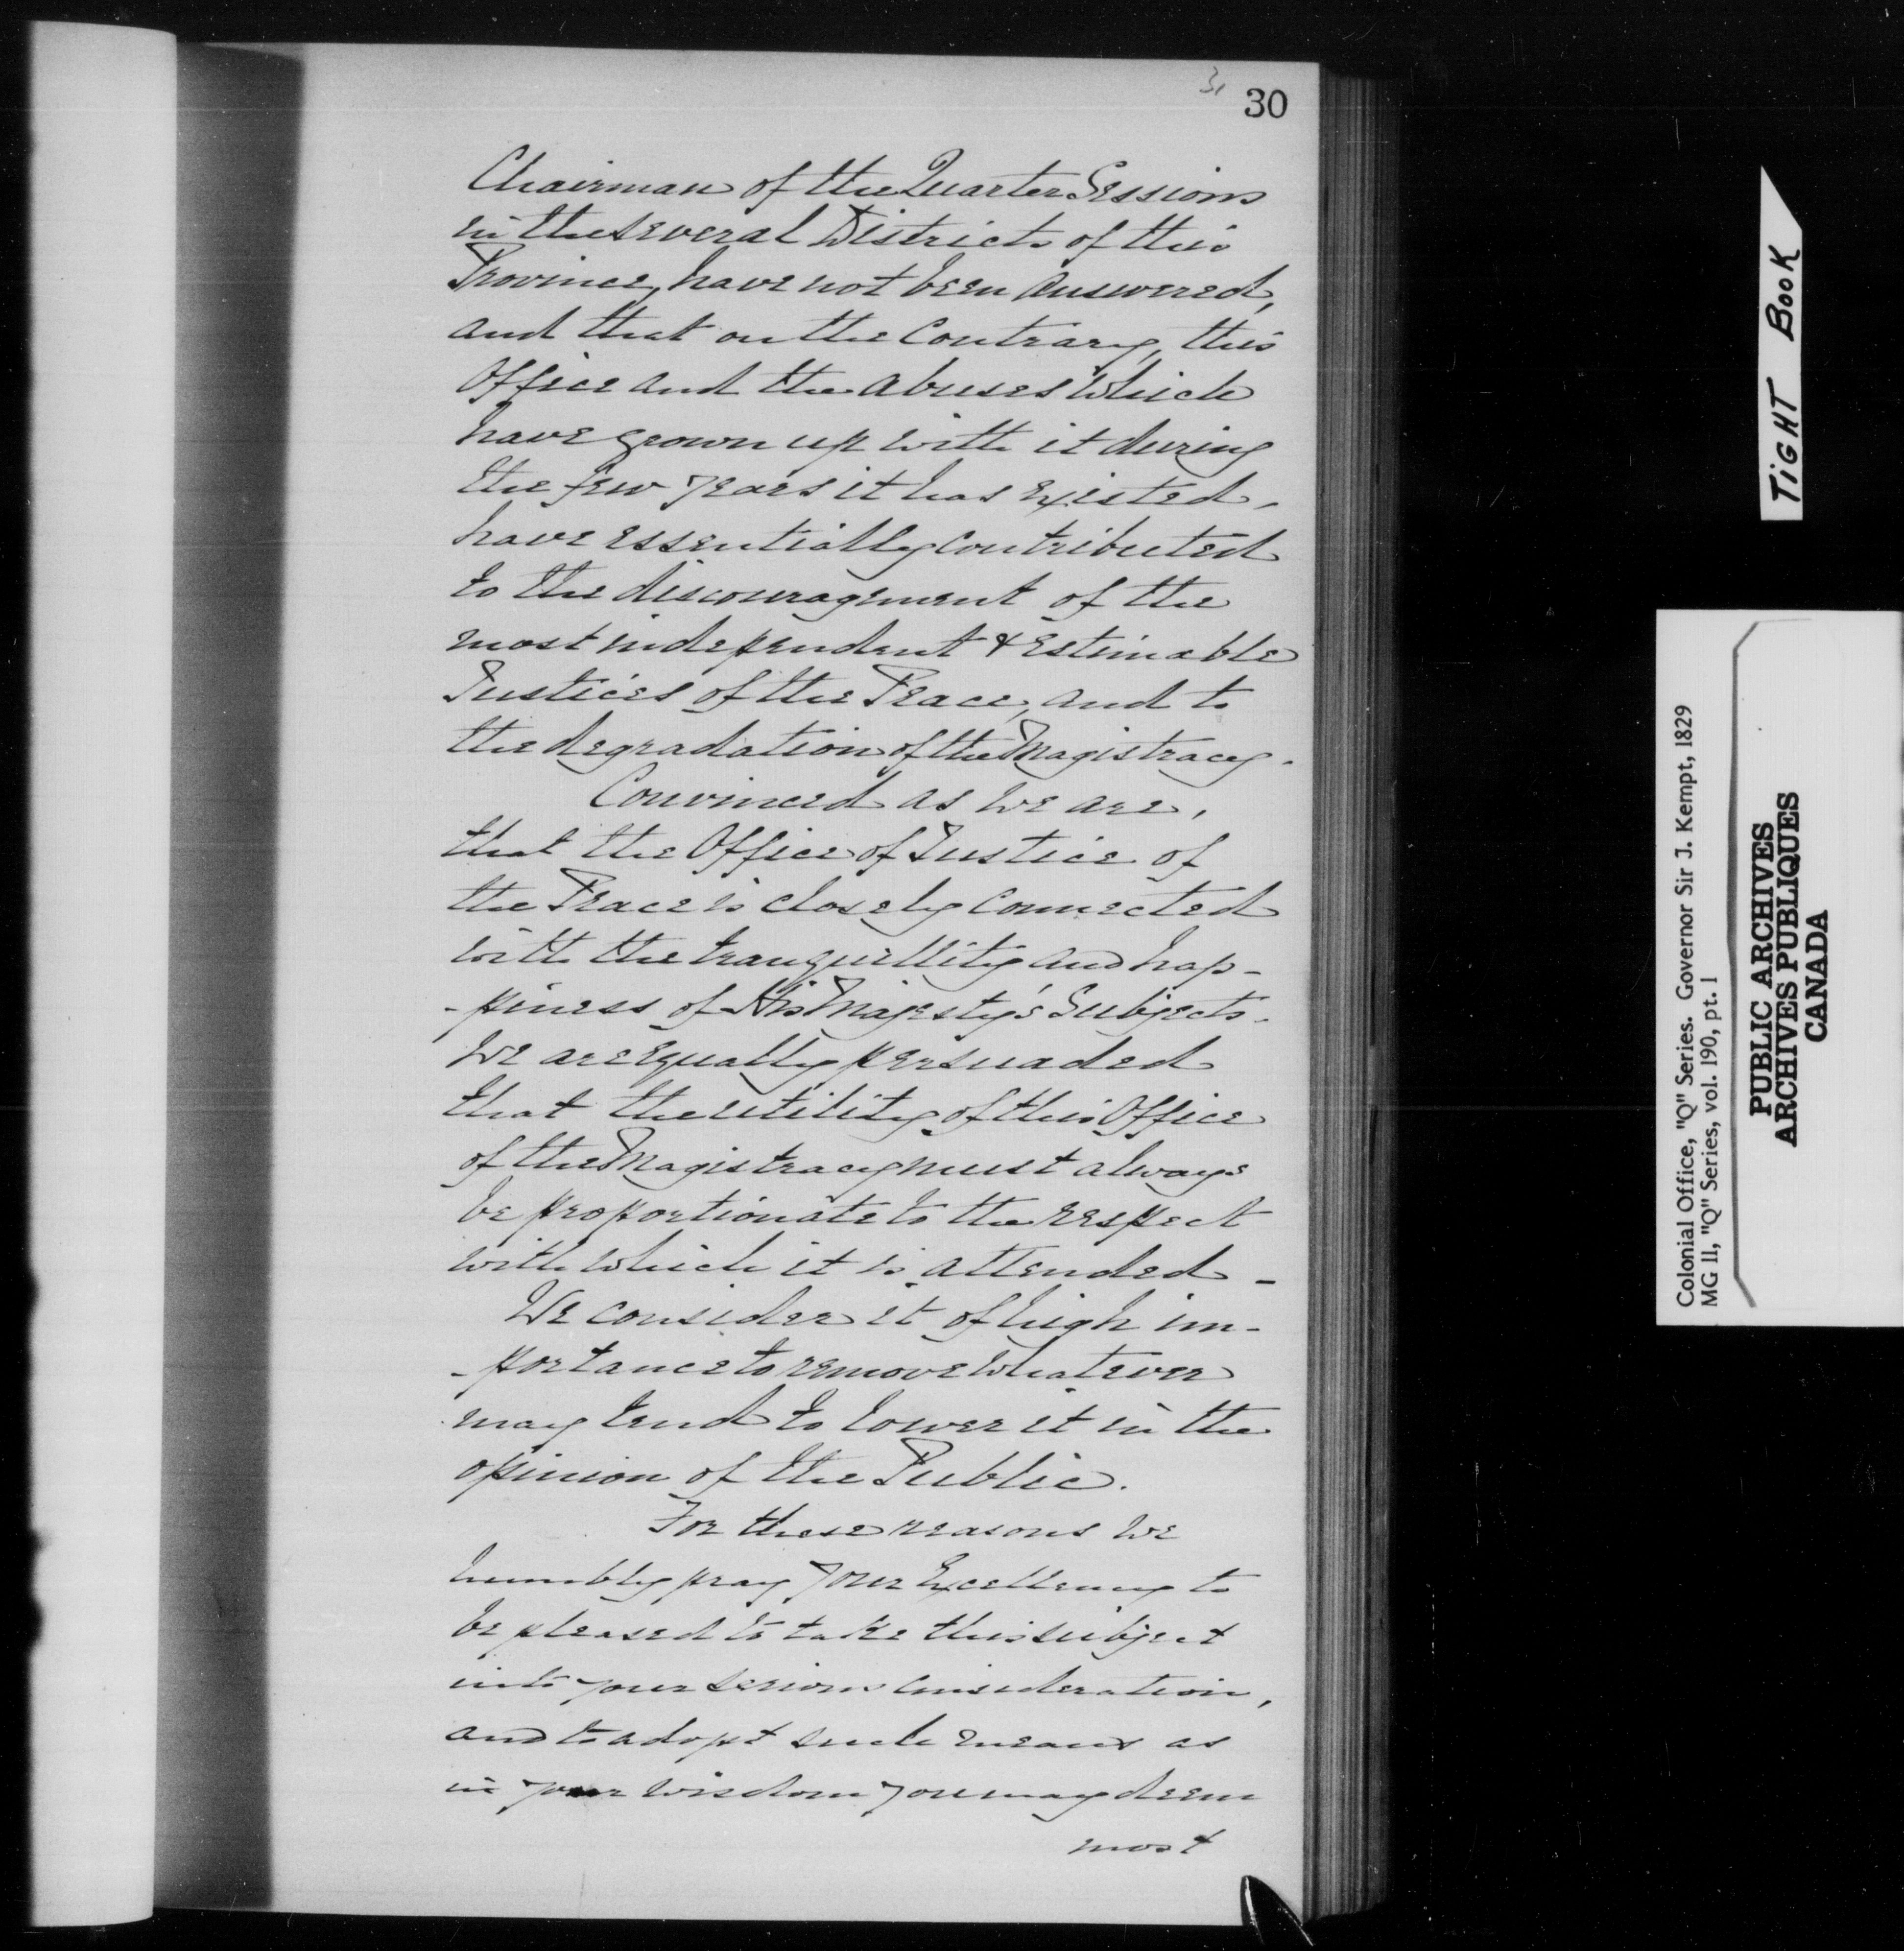 31
30
Chairman of the Quarter Sessions
in the several Districts of this
Province, have not been answered,
and that on the Contrary, this
Office and the abuses which
have grown up with it during
the few years it has existed,
have essentially contributed
to the discouragement of the
most independent & estimable
Justices of the Peace, and to
the degradation of the Magistracy.
Convinced as we are,
that the Office of Justice of
the Peace is closely connected
with the tranquillity and hap-
-piness of His Majesty's Subjects.
We are equally persuaded
that the utility of this Office
of the Magistracy must always
be proportionate to the respect
with which it is attended -
We consider it of high im-
-portance to remove whatever
may tend to lower it in the
opinion of the Public.
For these reasons we
humbly pray Your Excellency to
be pleased to take this subject
into your serious Consideration,
and to adopt such means as
in your wisdom you may deem
most
TIGHT BOOK
Colonial Office, "Q" Series. Governor Sir J. Kempt, 1829
MG 11, "Q" Series, vol. 190, pt. 1
PUBLIC ARCHIVES
ARCHIVES PUBLIQUES
CANADA